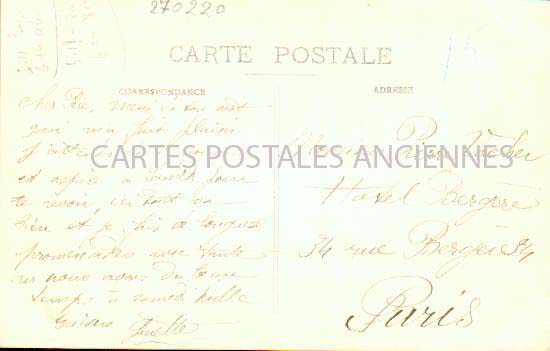 270220
15
CARTE POSTALE
CORRESPONDANCE
ADRESSE
CARTES POSTALES ANCIENNES
Cher Père, merci de ton mot
qui m'a fait plaisir
J'attends
et aspire à samedi pour
te revoir ici tout va
bien et je fais de longues
promenades avec tante
car nous avons du beau
temps à samedi mille
baisers
Monsieur Pierre
Hotel Bergère
34 rue Bergère 34
Paris